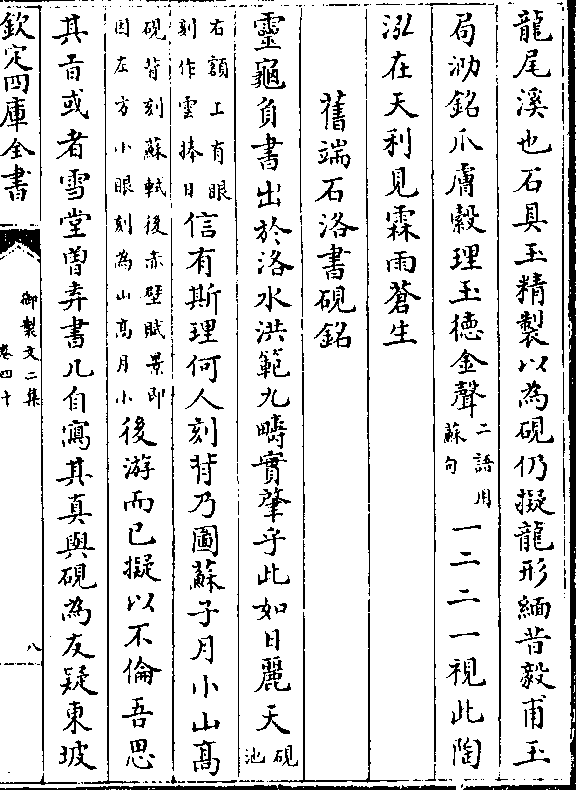 龍尾溪也石具玉精製以為硯仍擬龍形緬昔毅甫玉
局泐銘爪膚縠理玉德金聲二語用蘇句一二二一視此陶
泓在天利見霖雨蒼生
舊端石洛書硯銘
靈龜負書出於洛水洪範九疇實肇乎此如日麗天硯池
右額上有眼刻作雲捧日信有斯理何人刻背乃圖蘇子月小山高
硯背刻蘇軾後赤壁賦景即因左方小眼刻為山高月小後游而已擬以不倫吾思
其旨或者雪堂曽弆書几自寫其真與硯為友疑東坡
欽定四庫全書
御製文二集
卷四十
八